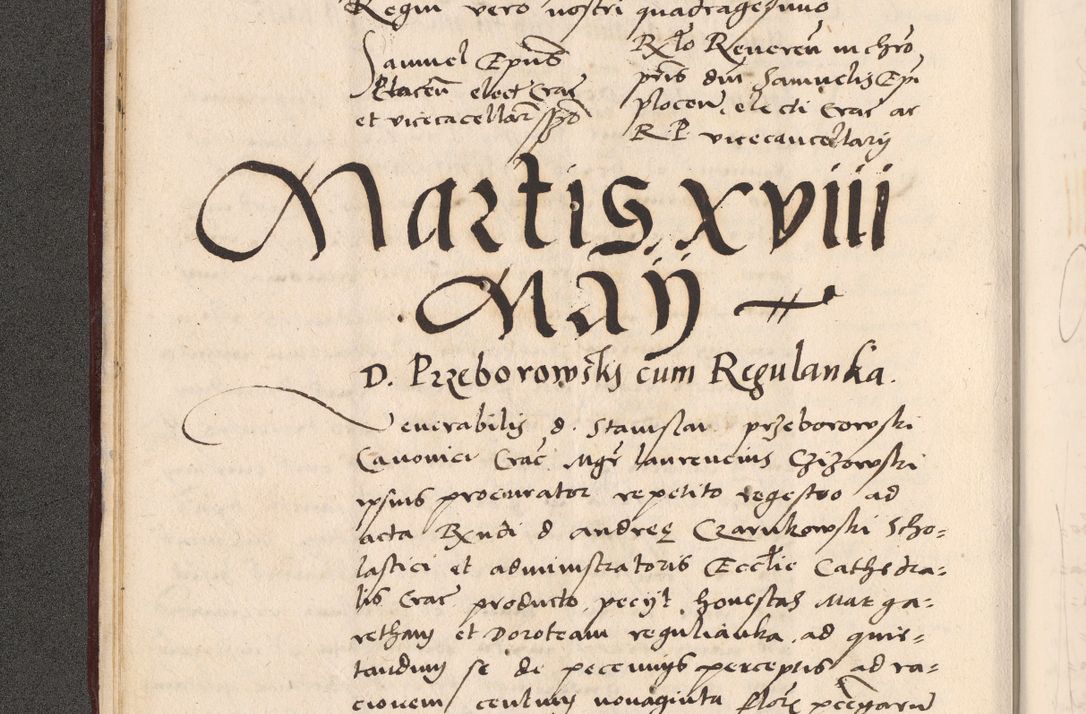 Regni vero nostri quadragesimo
Samuel Epūs
Plocen̄ elect Crac̄
et vicecacellar̄ spd
Rlo Reveren in chro
pris dni Samuelis Epi
plocen, electi Crac ac
R. P. vicecancellarij
Martis, xviii
Maij
D. Przeborowskj cum Regulanka.
Venerabilis d. Stanislai przeborowski
Canonici Crac̄ Mgr̄ laurencius Czizowski
ipsius procurator repetito regestro ad
acta Rxndi d andreę Czarnkowski Scho=
lastici et administratoris Ecclie Cathedra=
lis Crac producto, pecijt honestas Marga=
retham et Doroteam regulianka, ad quis=
tandum se de pecunijs perceptis ad ra=
cionem centum nonaginta flor